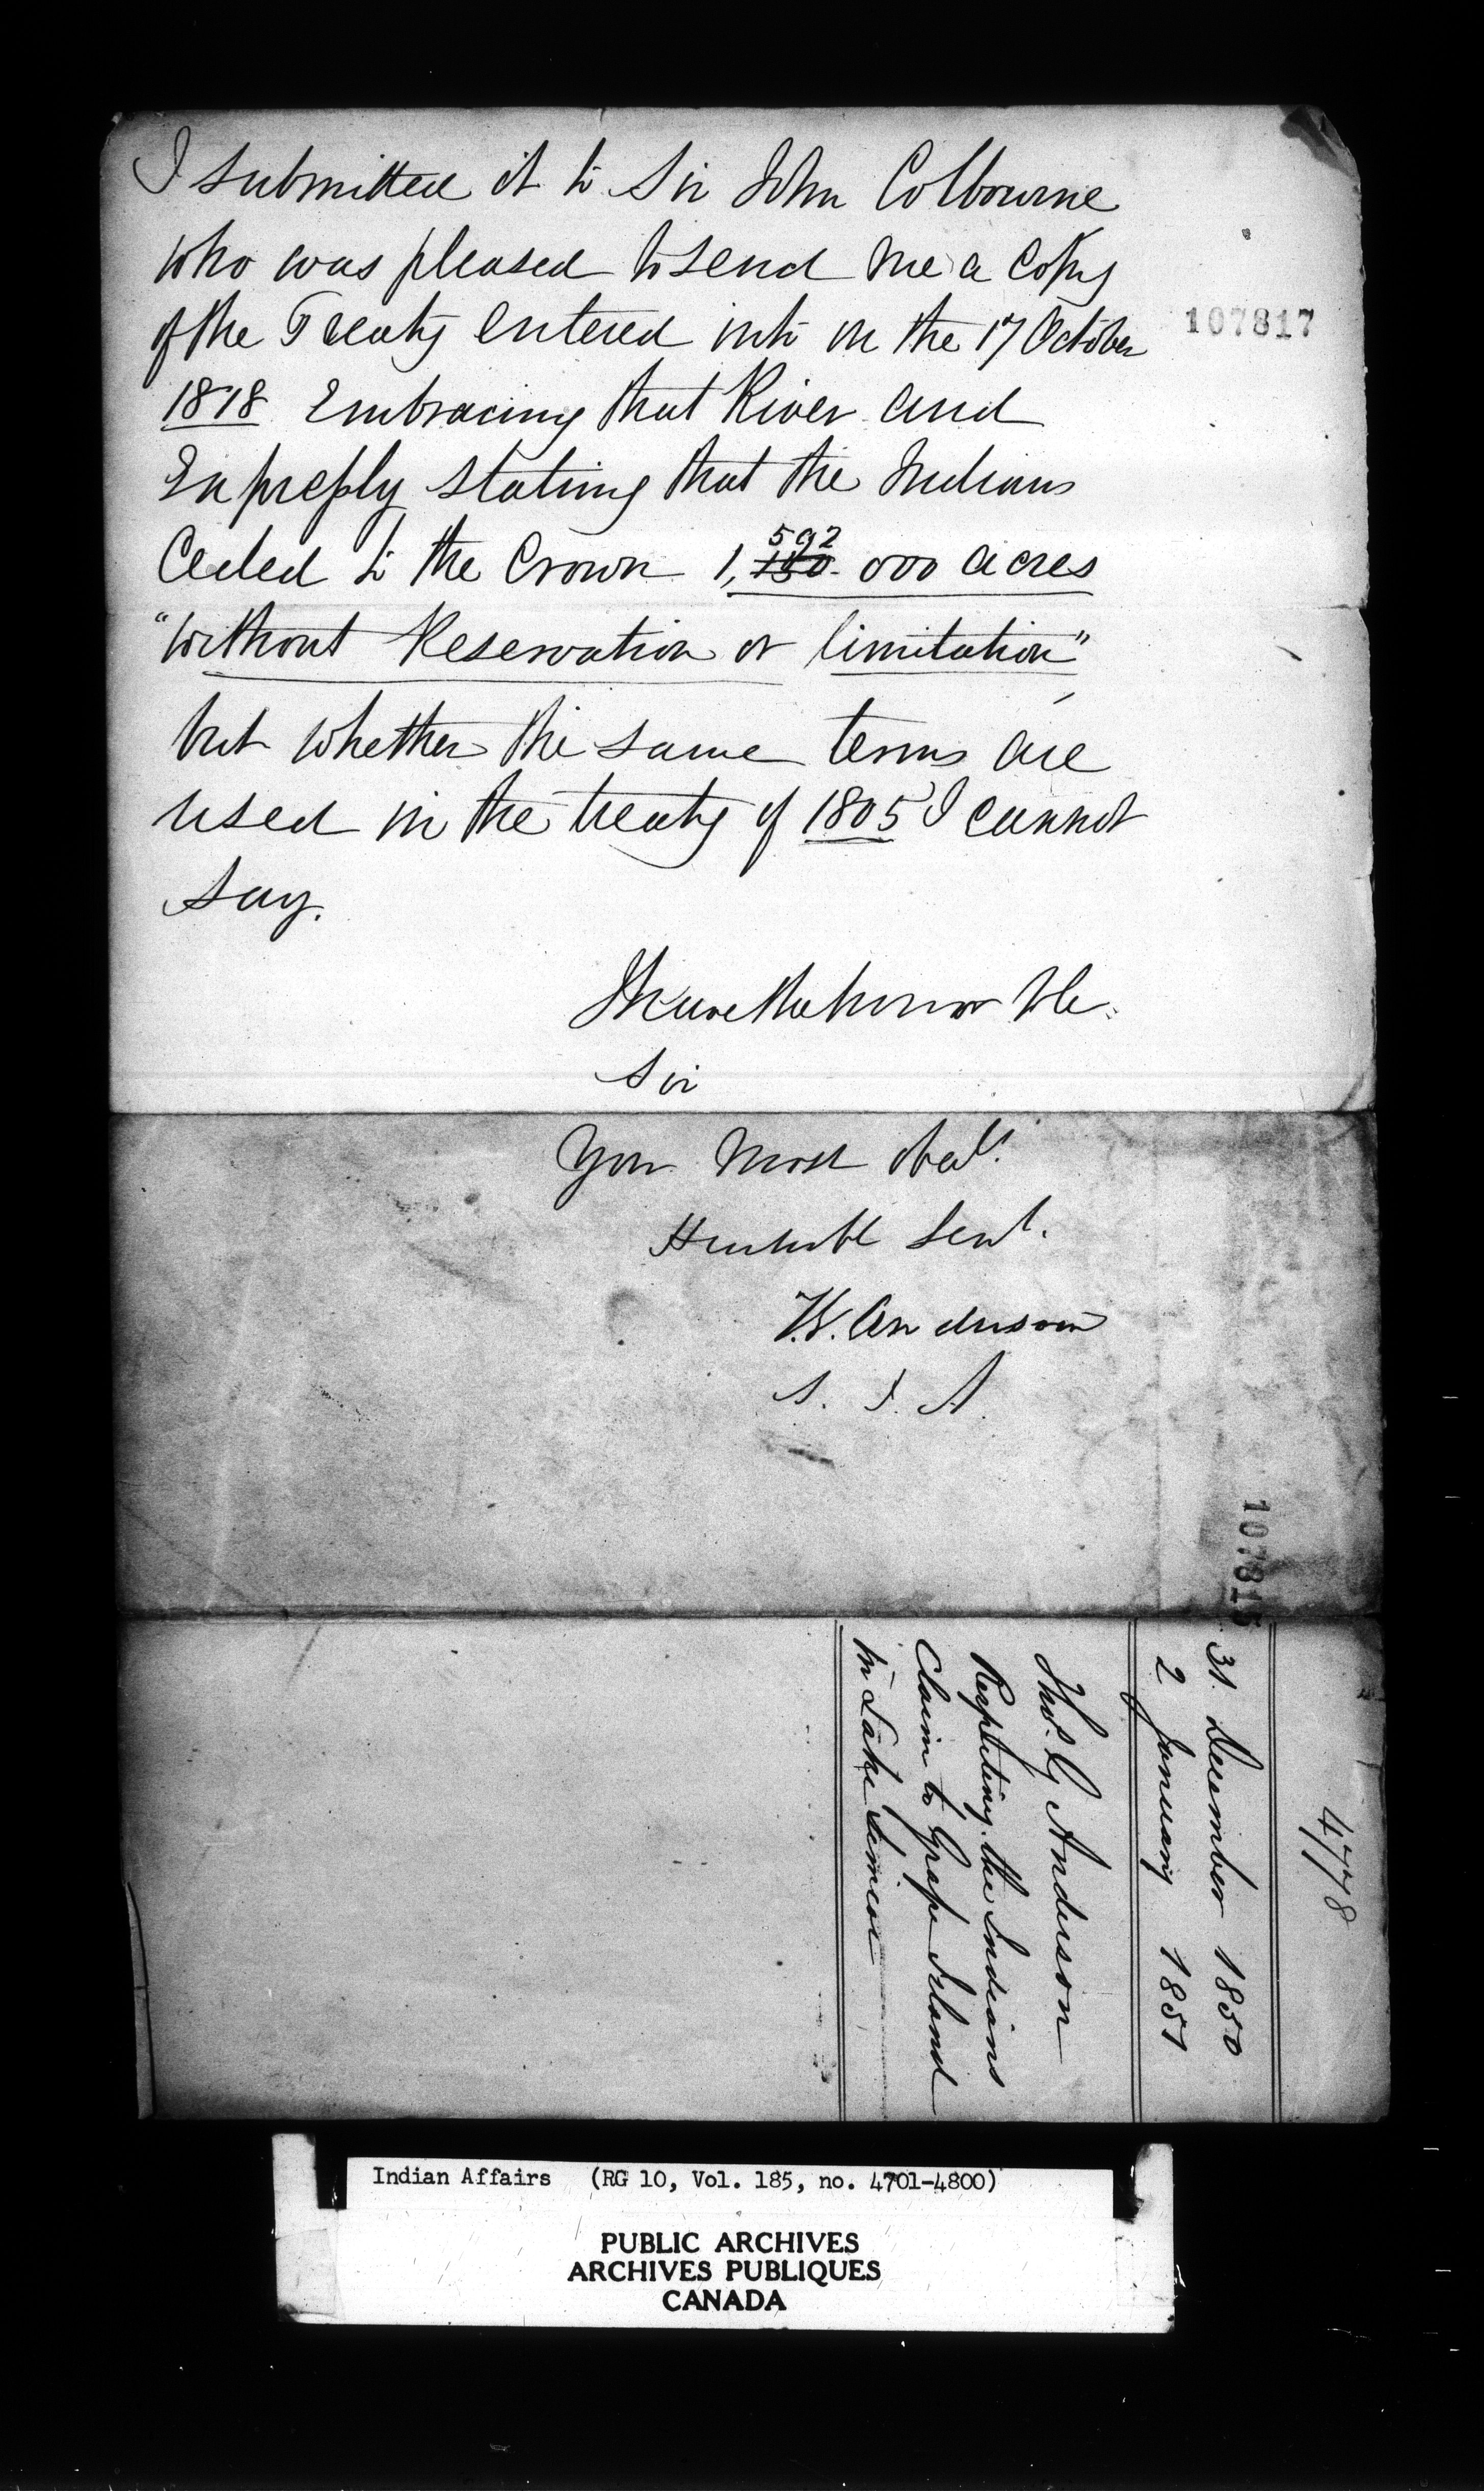 I submitted it to Sir John Colbourne
who was pleased to send me a Copy
of the Treaty entered into on the 17 October
107817
1818 Embracing that River and
Expressly stating that the Indians
Ceded to the Crown 1,592 000 acres
"without Reservation or limitation"
but whether the same terms are
used in the treaty of 1805 I cannot
say.
I have the honor to be
Sir
Your Most obedt.
Humble Servt.
T.G. Anderson
S. I. A.
107815
4778
31. December 1850
2 January 1851
Thos. G Anderson
Respecting the Indians
Claim to Grape Island
in Lake Simcoe
Indian Affairs (RG 10, Vol. 185, no. 4701-4800)
PUBLIC ARCHIVES
ARCHIVES PUBLIQUES
CANADA